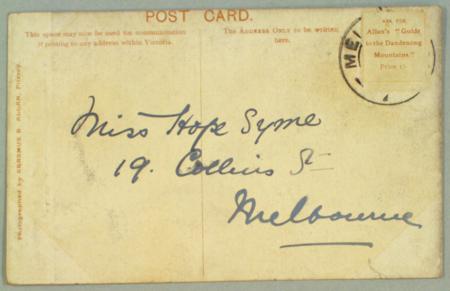 POST CARD.
This space may now be used for communication
if posting to any address within Victoria.
The Address Only to be written
here.
ASK FOR
Allen's "Guide
to the Dandenong
Mountains."
Price 1/-
MEL
Photographed by
Miss Hope Syme
19. Collins St
Melbourne